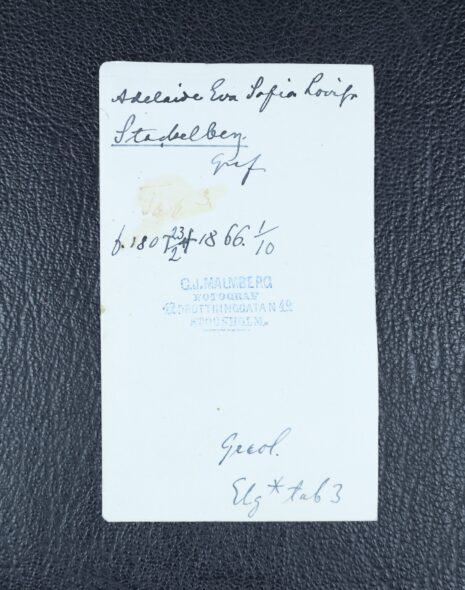 Adelaide Eva Sofia Lovisa
Stackelberg
Gref
f. 1807 23/2 † 1866. 1/10
C.J. MALMBERG
FOTOGRAF
42 DROTTNINGGATAN 42
STOCKHOLM.
Geeol.
Elg * tab 3